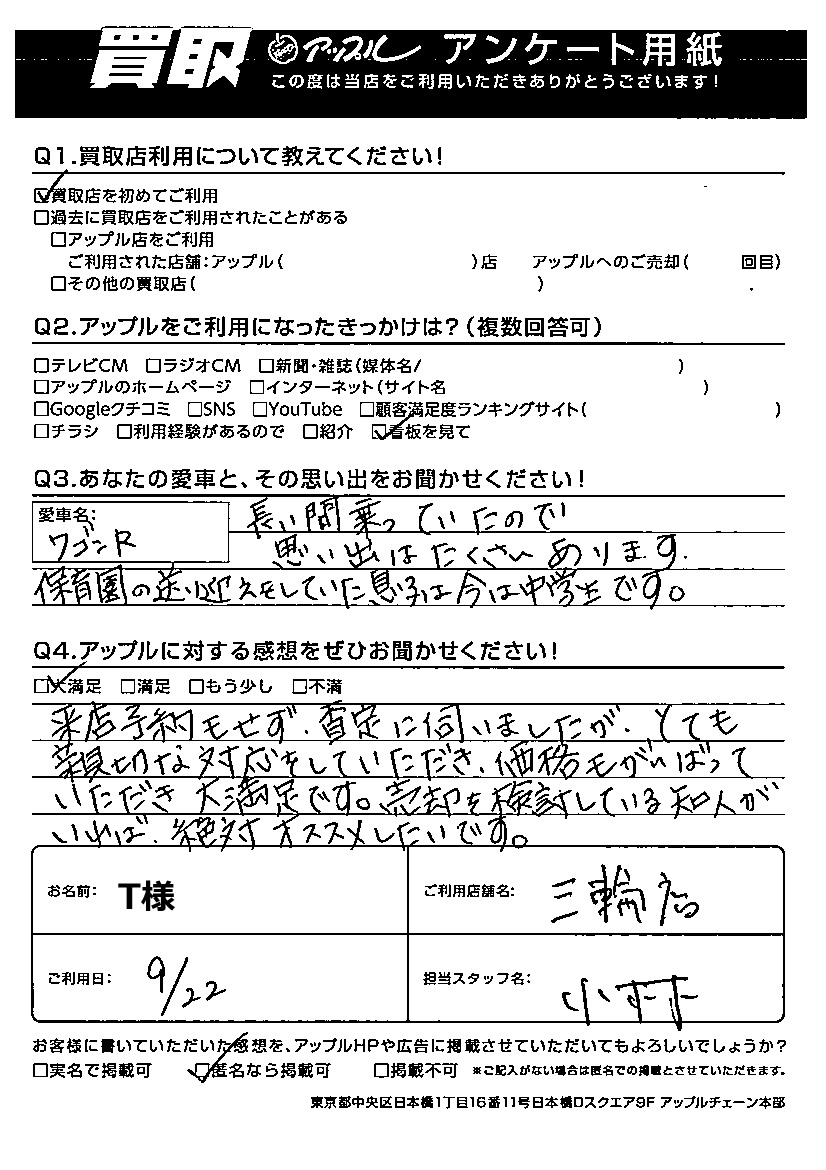 買取 アップル アンケート用紙
この度は当店をご利用いただきありがとうございます!
Q1.買取店利用について教えてください!
☑買取店を初めてご利用
□過去に買取店をご利用されたことがある
□アップル店をご利用
ご利用された店舗:アップル( )店 アップルへのご売却( 回目)
□その他の買取店( )
Q2.アップルをご利用になったきっかけは?(複数回答可)
□テレビCM □ラジオCM □新聞・雑誌(媒体名/ )
□アップルのホームページ □インターネット(サイト名 )
□Googleクチコミ □SNS □YouTube □顧客満足度ランキングサイト( )
□チラシ □利用経験があるので □紹介 ☑看板を見て
Q3.あなたの愛車と、その思い出をお聞かせください!
愛車名:
ワゴンR
長い間乗っていたので
思い出はたくさんあります.
保育園の送り迎えをしていた息子は今は中学生です。
Q4.アップルに対する感想をぜひお聞かせください!
☑大満足 □満足 □もう少し □不満
来店予約もせず、査定に伺いましたが、とても
親切な対応をしていただき、価格もがんばって
いただき大満足です。売却を検討している知人が
いれば、絶対オススメしたいです。
お名前: T様 ご利用店舗名: 三輪店
ご利用日: 9/22 担当スタッフ名: 小林
お客様に書いていただいた感想を、アップルHPや広告に掲載させていただいてもよろしいでしょうか?
□実名で掲載可 ☑匿名なら掲載可 □掲載不可 ※ご記入がない場合は匿名での掲載とさせていただきます。
東京都中央区日本橋1丁目16番11号日本橋ロスクエア9F アップルチェーン本部